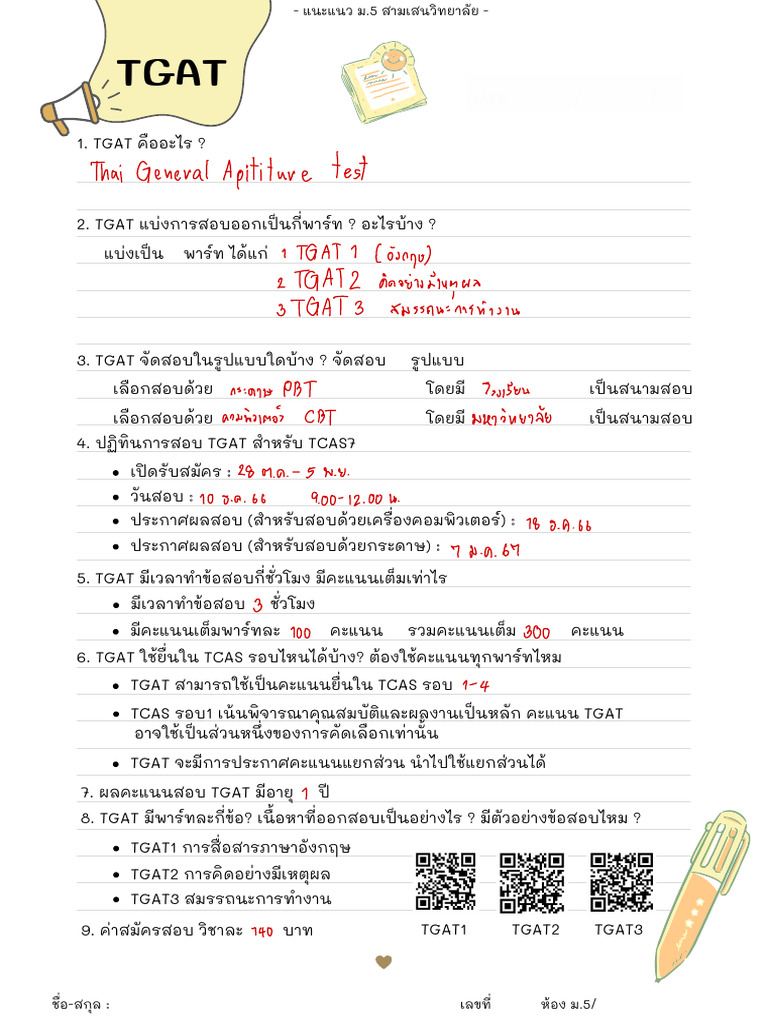 - แนะแนว ม.5 สามเสนวิทยาลัย -
TGAT
1. TGAT คืออะไร ?
Thai General Apititure test
2. TGAT แบ่งการสอบออกเป็นกี่พาร์ท ? อะไรบ้าง ?
แบ่งเป็น พาร์ท ได้แก่ 1 TGAT 1 (อังกฤษ)
2 TGAT 2 คิดอย่างมีเหตุผล
3 TGAT 3 สมรรถนะการทำงาน
3. TGAT จัดสอบในรูปแบบใดบ้าง ? จัดสอบ รูปแบบ
เลือกสอบด้วย กระดาษ PBT โดยมี โรงเรียน เป็นสนามสอบ
เลือกสอบด้วย คอมพิวเตอร์ CBT โดยมี มหาวิทยาลัย เป็นสนามสอบ
4. ปฏิทินการสอบ TGAT สำหรับ TCAS7
• เปิดรับสมัคร : 28 ต.ค. - 5 พ.ย.
• วันสอบ : 10 ธ.ค. 66 9.00-12.00 น.
• ประกาศผลสอบ (สำหรับสอบด้วยเครื่องคอมพิวเตอร์) : 18 ธ.ค. 66
• ประกาศผลสอบ (สำหรับสอบด้วยกระดาษ) : 7 ม.ค. 67
5. TGAT มีเวลาทำข้อสอบกี่ชั่วโมง มีคะแนนเต็มเท่าไร
• มีเวลาทำข้อสอบ 3 ชั่วโมง
• มีคะแนนเต็มพาร์ทละ 100 คะแนน รวมคะแนนเต็ม 300 คะแนน
6. TGAT ใช้ยื่นใน TCAS รอบไหนได้บ้าง? ต้องใช้คะแนนทุกพาร์ทไหม
• TGAT สามารถใช้เป็นคะแนนยื่นใน TCAS รอบ 1-4
• TCAS รอบ1 เน้นพิจารณาคุณสมบัติและผลงานเป็นหลัก คะแนน TGAT
อาจใช้เป็นส่วนหนึ่งของการคัดเลือกเท่านั้น
• TGAT จะมีการประกาศคะแนนแยกส่วน นำไปใช้แยกส่วนได้
7. ผลคะแนนสอบ TGAT มีอายุ 1 ปี
8. TGAT มีพาร์ทละกี่ข้อ? เนื้อหาที่ออกสอบเป็นอย่างไร ? มีตัวอย่างข้อสอบไหม ?
• TGAT1 การสื่อสารภาษาอังกฤษ
• TGAT2 การคิดอย่างมีเหตุผล
• TGAT3 สมรรถนะการทำงาน
9. ค่าสมัครสอบ วิชาละ 140 บาท
TGAT1 TGAT2 TGAT3
ชื่อ-สกุล : เลขที่ ห้อง ม.5/